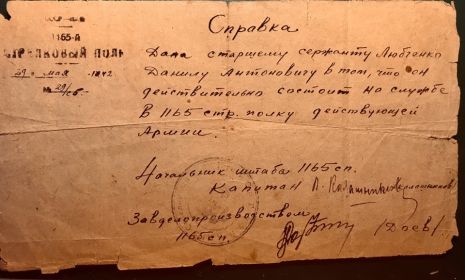 Справка
1165-й
СТРЕЛКОВЫЙ ПОЛК
29 мая 1942
Дана старшему сержанту Любченко
Данилу Антоновичу в том, что он
действительно состоит на службе
В 1165 стр. полку действующей
Армии.
Начальник штаба 1165 сп.
Капитан
Завделопроизводством
1165 сп.